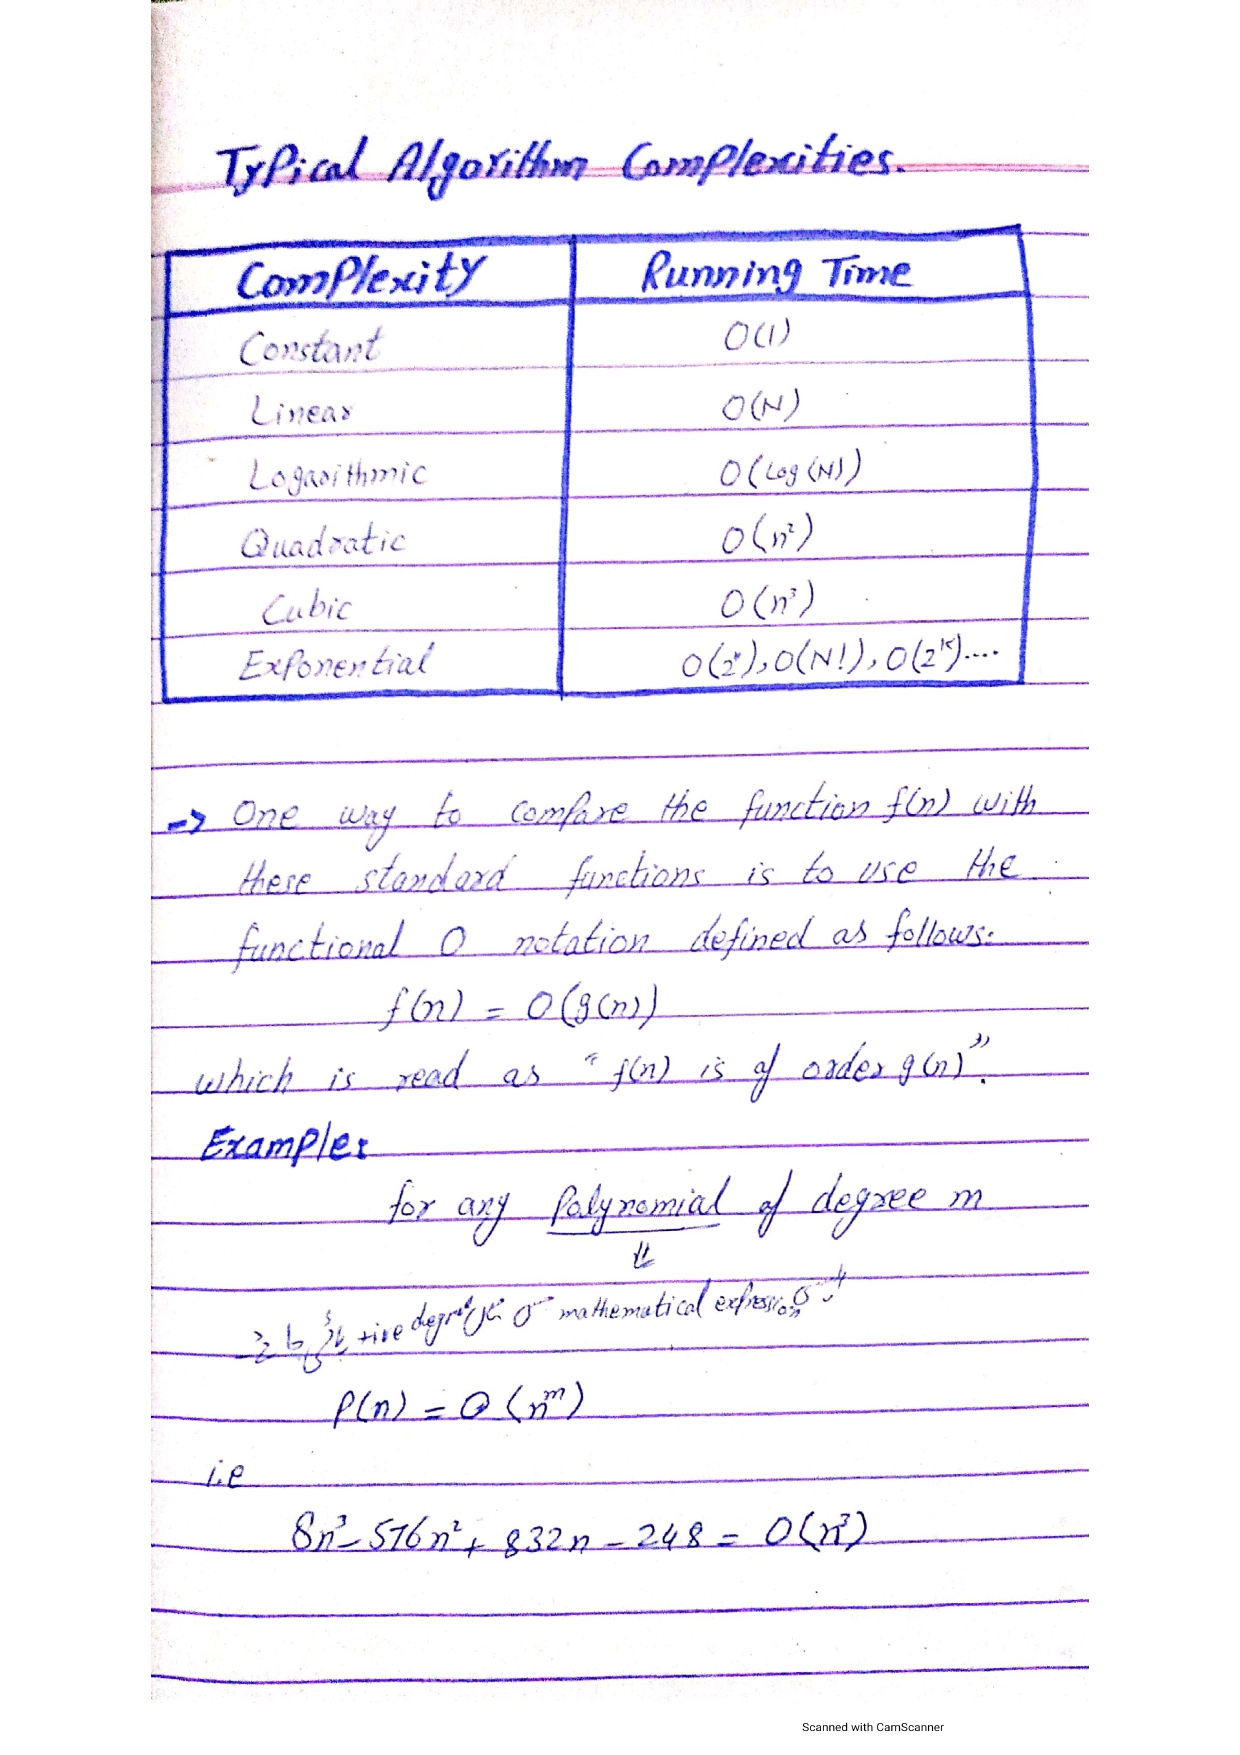 Typical Algorithm Complexities.
Complexity Running Time
Constant O(1)
Linear O(N)
Logarithmic O(Log(N))
Quadratic O(n²)
Cubic O(n³)
Exponential O(2ⁿ), O(N!), O(2ᴷ)....
→ One way to compare the function f(n) with
these standard functions is to use the
functional O notation defined as follows:
f(n) = O(g(n))
which is read as "f(n) is of order g(n)".
Example:
for any Polynomial of degree m
⇓
mathematical expression
+ive degree
P(n) = O(nᵐ)
i.e
8n³ - 576n² + 832n - 248 = O(n³)
Scanned with CamScanner